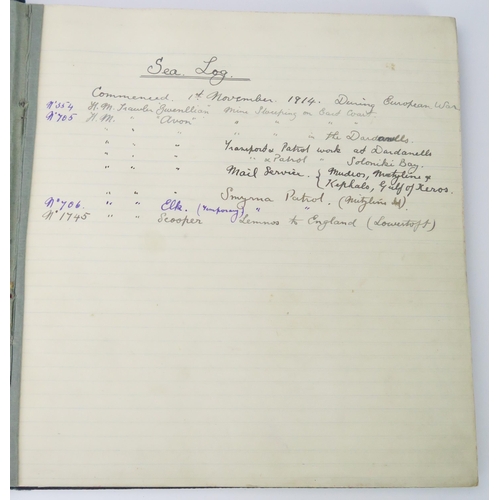 Sea Log.
Commenced 1st November 1914. During European War
No 354 H.M. Trawler "Gwenllian" Mine Sweeping on East Coast.
No 705 H.M. " "Avon" " " "
" " " " " in the Dardanells.
" " " Transport & Patrol work at Dardanells
" " " " & Patrol " Soloniki Bay.
" " " Mail Service. { Mudros, Mitylene &
Kephalo, Gulf of Xeros.
" " " Smyrna Patrol. (Mitylene Isl)
No 706 " " Elk. (Temporary) " "
No 1745 " " Scooper Lemnos to England (Lowestoft)